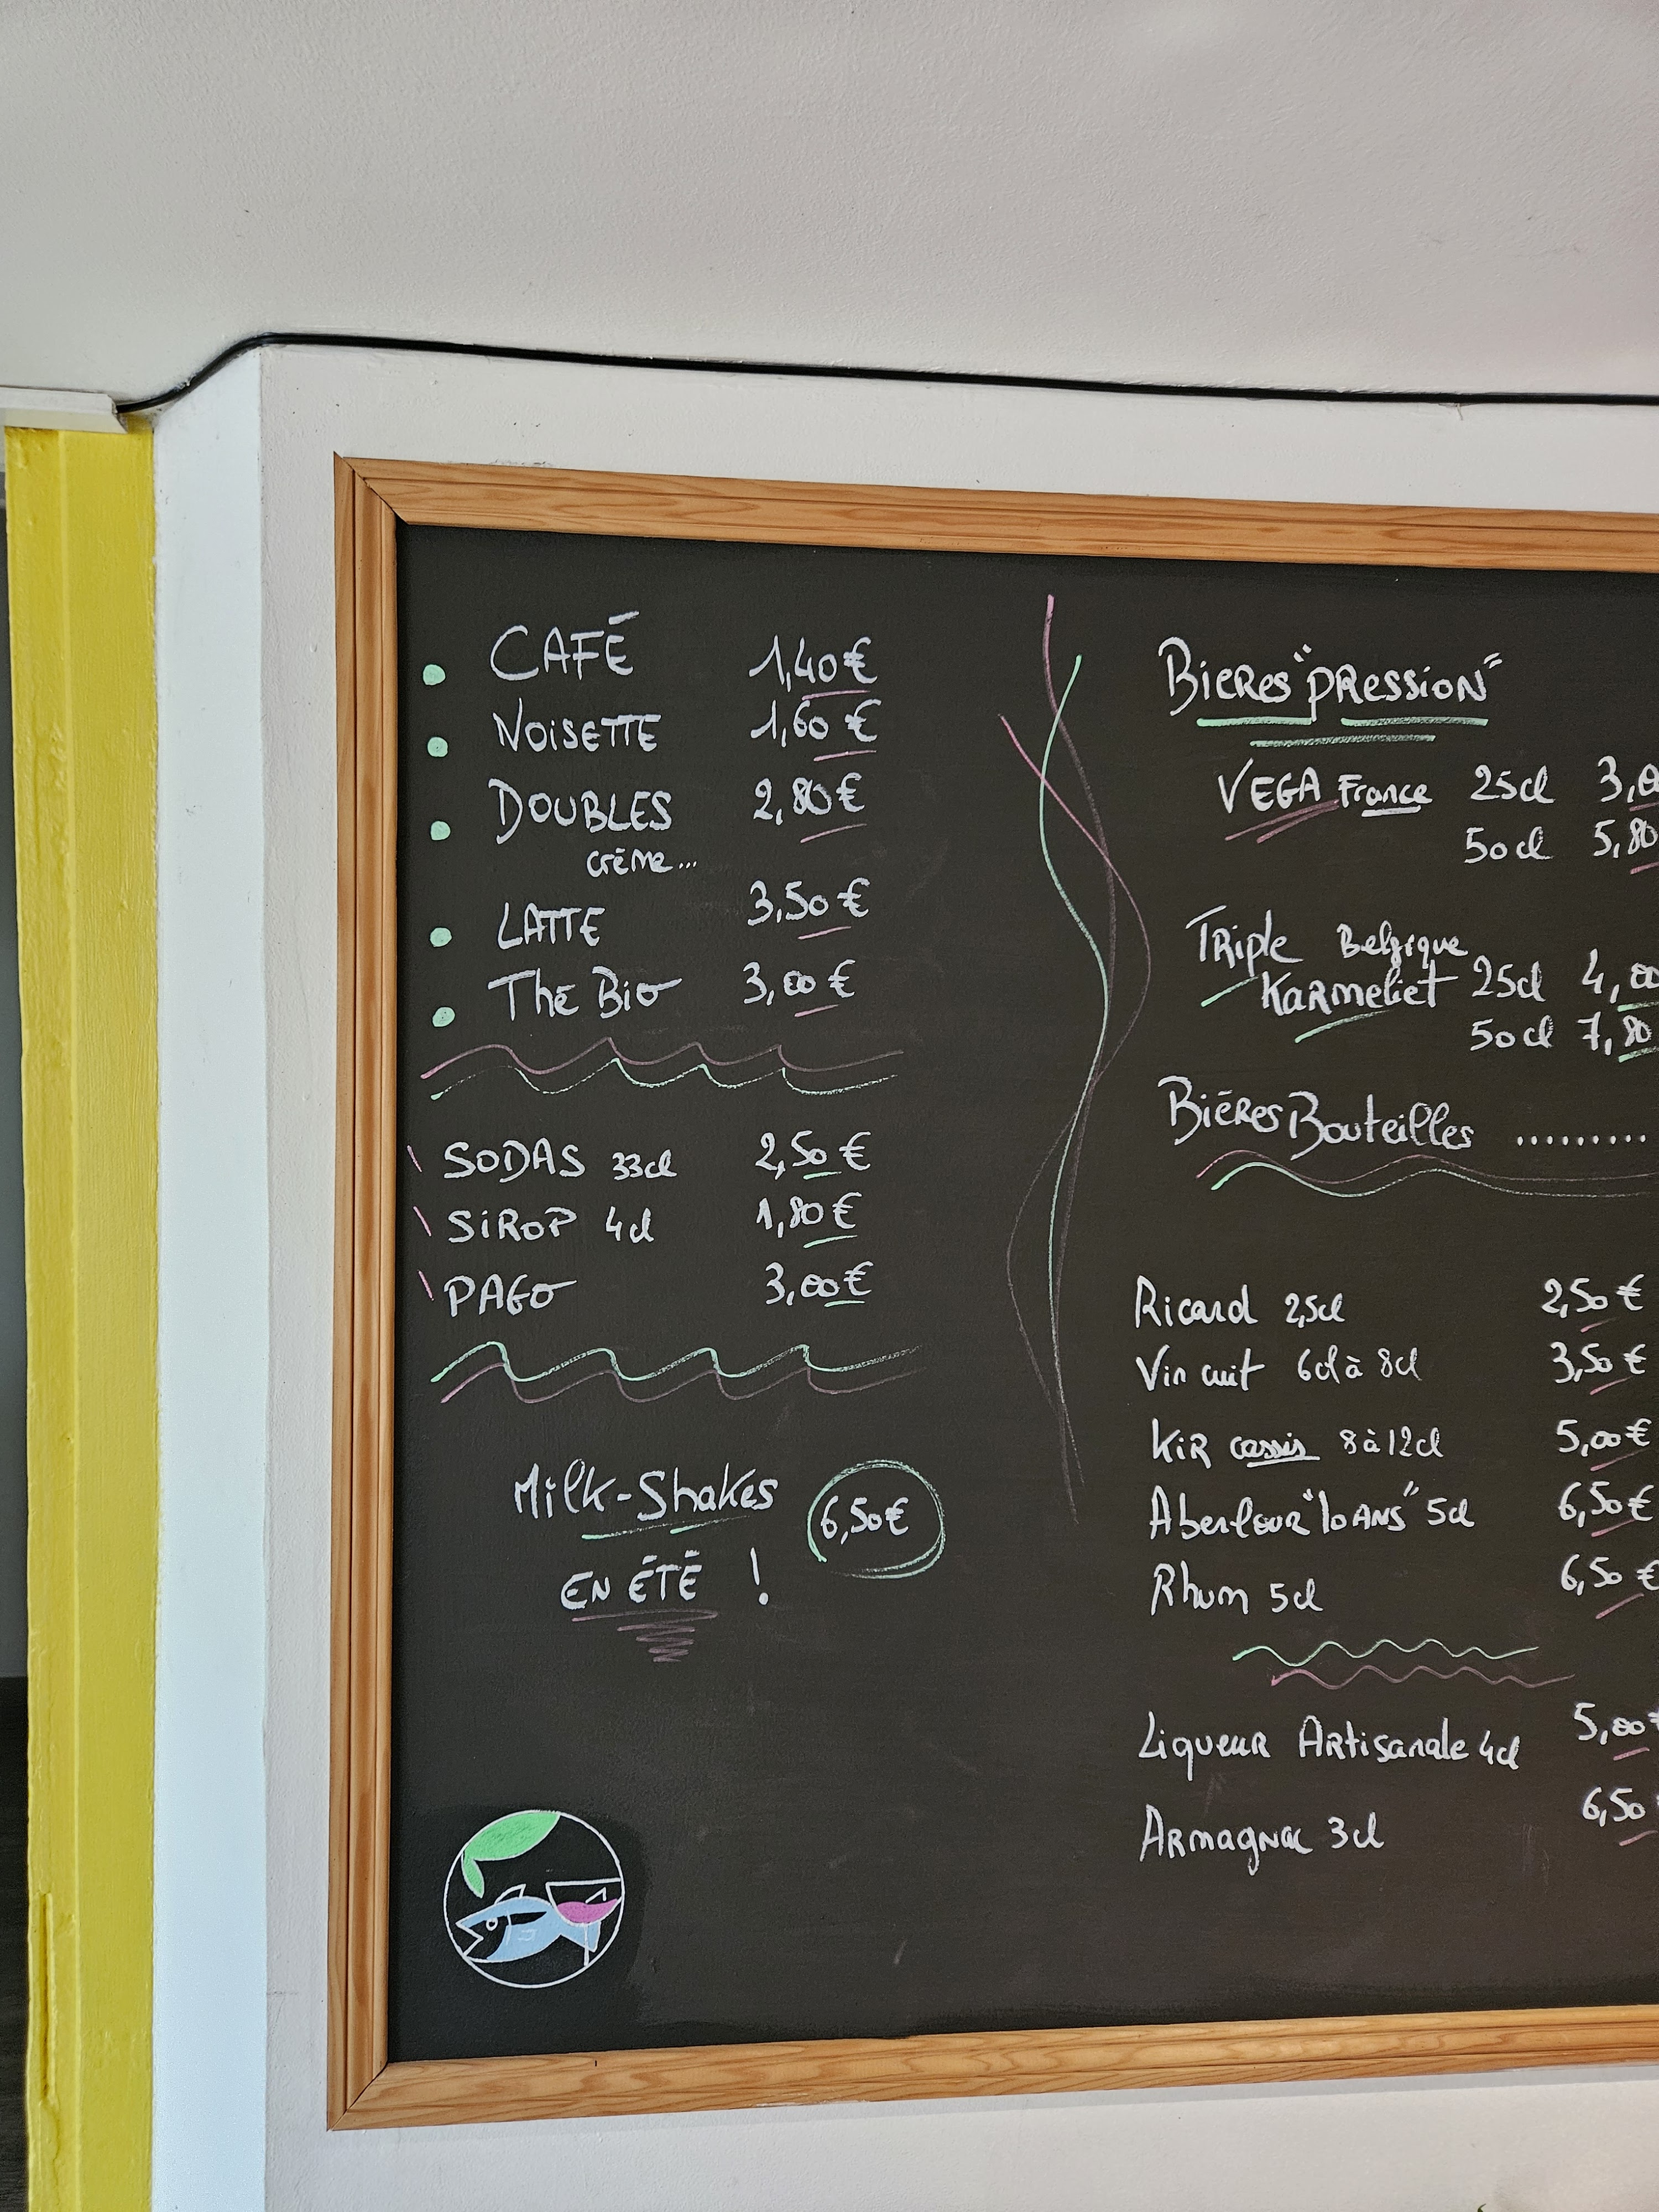 CAFÉ 1,40€
NOISETTE 1,60€
DOUBLES 2,80€
crème...
LATTE 3,50€
Thé Bio 3,00€
SODAS 33cl 2,50€
SiROP 4cl 1,80€
PAGO 3,00€
Milk-Shakes 6,50€
EN ÉTÉ !
Bières "pRession"
VEGA France 25cl 3,0
50cl 5,80
TRiple Belgique
KaRmeliet 25cl 4,00
50cl 7,80
BièRes Bouteilles .........
Ricard 2,5cl 2,50€
Vin cuit 6cl à 8cl 3,50€
KiR cassis 8 à 12cl 5,00€
Aberlour "10 ANS" 5cl 6,50€
Rhum 5cl 6,50€
Liqueur ARtisanale 4cl 5,00€
ARmagnac 3cl 6,50